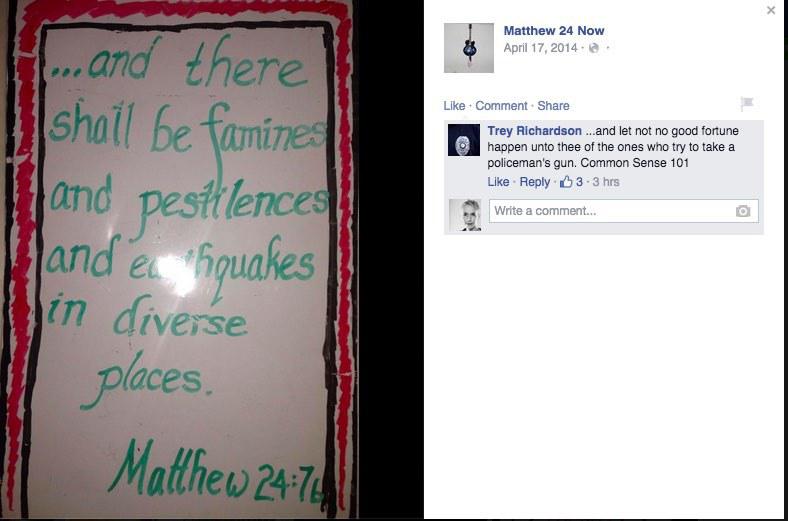 ...and there
shall be famines
and pestilences
and earthquakes
in diverse
places.
Matthew 24:7b
Matthew 24 Now
April 17, 2014 ·
Like · Comment · Share
Trey Richardson ...and let not no good fortune
happen unto thee of the ones who try to take a
policeman's gun. Common Sense 101
Like · Reply · 3 · 3 hrs
Write a comment...